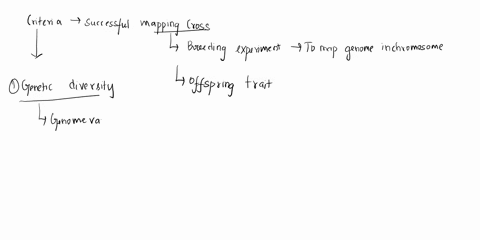 Criteria → Successful mapping cross
↳ Breeding experiment → To map genome inchromosome
① Genetic diversity
↳ Offspring trait
↳ Genomeva